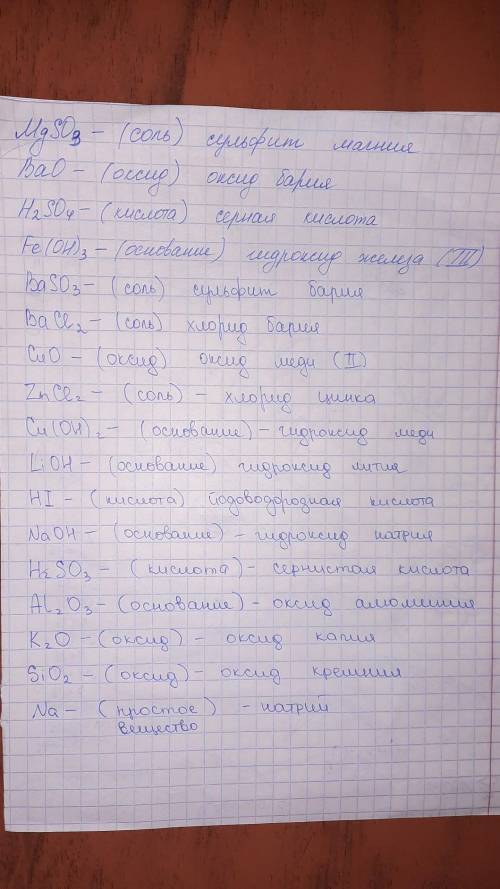 MgSO3 - (соль) сульфит магния
BaO - (оксид) оксид бария
H2SO4 - (кислота) серная кислота
Fe(OH)3 - (основание) гидроксид железа (III)
BaSO3 - (соль) сульфит бария
BaCl2 - (соль) хлорид бария
CuO - (оксид) оксид меди (II)
ZnCl2 - (соль) - хлорид цинка
Cu(OH)2 - (основание) - гидроксид меди
LiOH - (основание) гидроксид лития
HI - (кислота) йодоводородная кислота
NaOH - (основание) - гидроксид натрия
H2SO3 - (кислота) - сернистая кислота
Al2O3 - (основание) - оксид алюминия
K2O - (оксид) - оксид калия
SiO2 - (оксид) - оксид кремния
Na - (простое вещество) - натрий